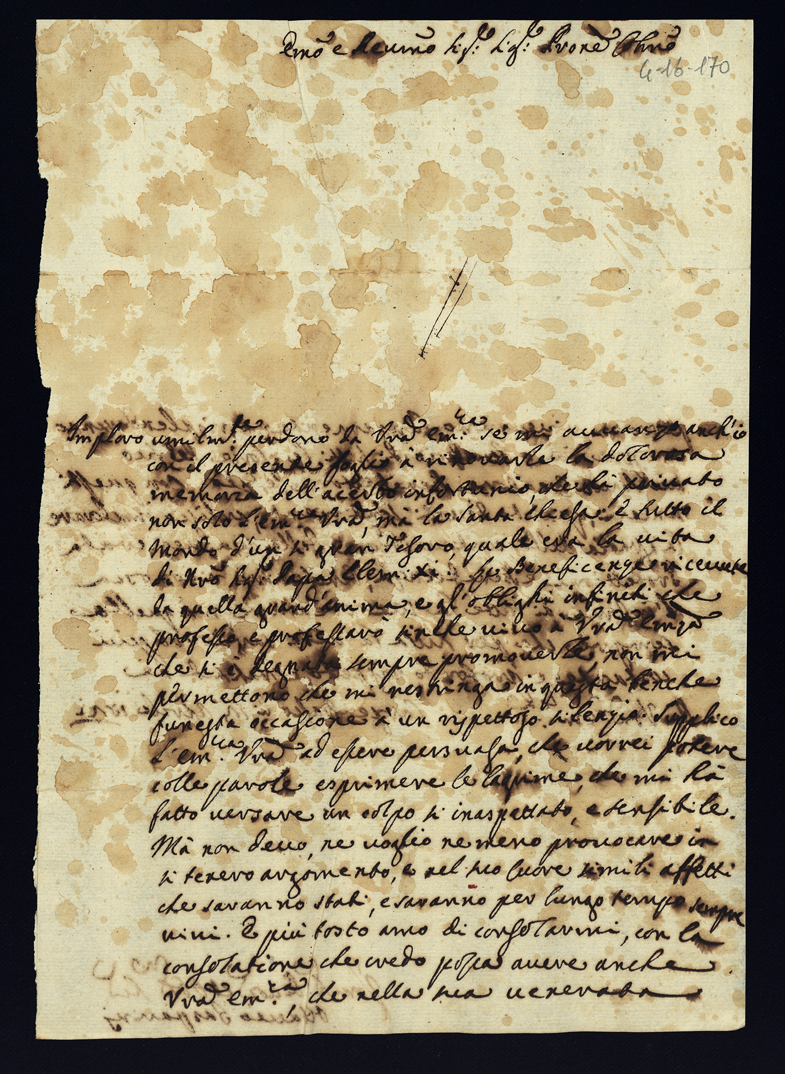 Emõ e Reumõ Sig.r Sig.r Prone Colmõ
4-16-170
Imploro umilm.te perdono da Vrã Em.za se mi auuanzo anch'io
con il presente foglio à rinouarle la dolorosa
memoria dell'acerbo infortunio, che hà priuato
non solo l'Em.za Vrã, mà la Santa Chiesa, e tutto il
Mondo d'un si gran Tesoro, quale era la uita
di Nrõ Sig.r Papa Clem: XI: Le Beneficenze riceuute
da quella grand'anima, e gl'oblighi infiniti che
professo, e professarò sinche uiuo à Vrã Emza
che si è degnata sempre promouerle, non mi
permettono che mi restringa in questa benche
funesta occasione à un rispettoso silenzio. Supplico
l'Em.za Vrã ad essere persuasa, che uorrei potere
colle parole esprimere le lagrime, che mi hà
fatto uersare un colpo si inaspettato, e sensibile.
Mà non deuo, ne uoglio ne meno prouocare in
si tenero argomento, e nel suo Cuore simili affetti
che saranno stati, e saranno per lungo tempo sempre
uiui. E più tosto amo di consolarmi, con la
consolatione che credo possa auere anche
Vrã Em.za, che nella sua uenerata